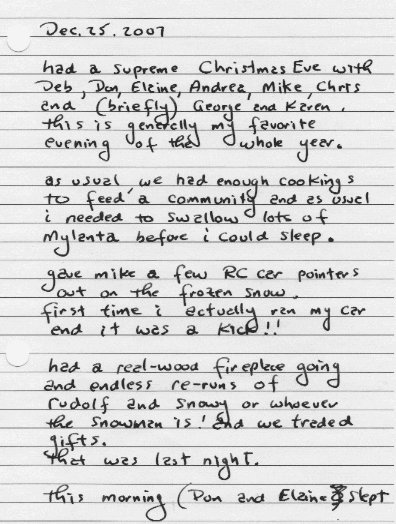 Dec. 25. 2007
had a supreme Christmas Eve with
Deb, Don, Elaine, Andrea, Mike, Chris
and (briefly) George and Karen.
this is generally my favorite
evening of the whole year.
as usual we had enough cookings
to feed a community and as usuel
i needed to swallow lots of
Mylanta before i could sleep.
gave mike a few RC car pointers
out on the frozen snow.
first time i actually ran my car
end it was a kick!!
had a real-wood fireplace going
and endless re-runs of
rudolf and snowy or whoever
the snowman is! and we traded
gifts.
that was last night.
this morning (Don and Elaine slept